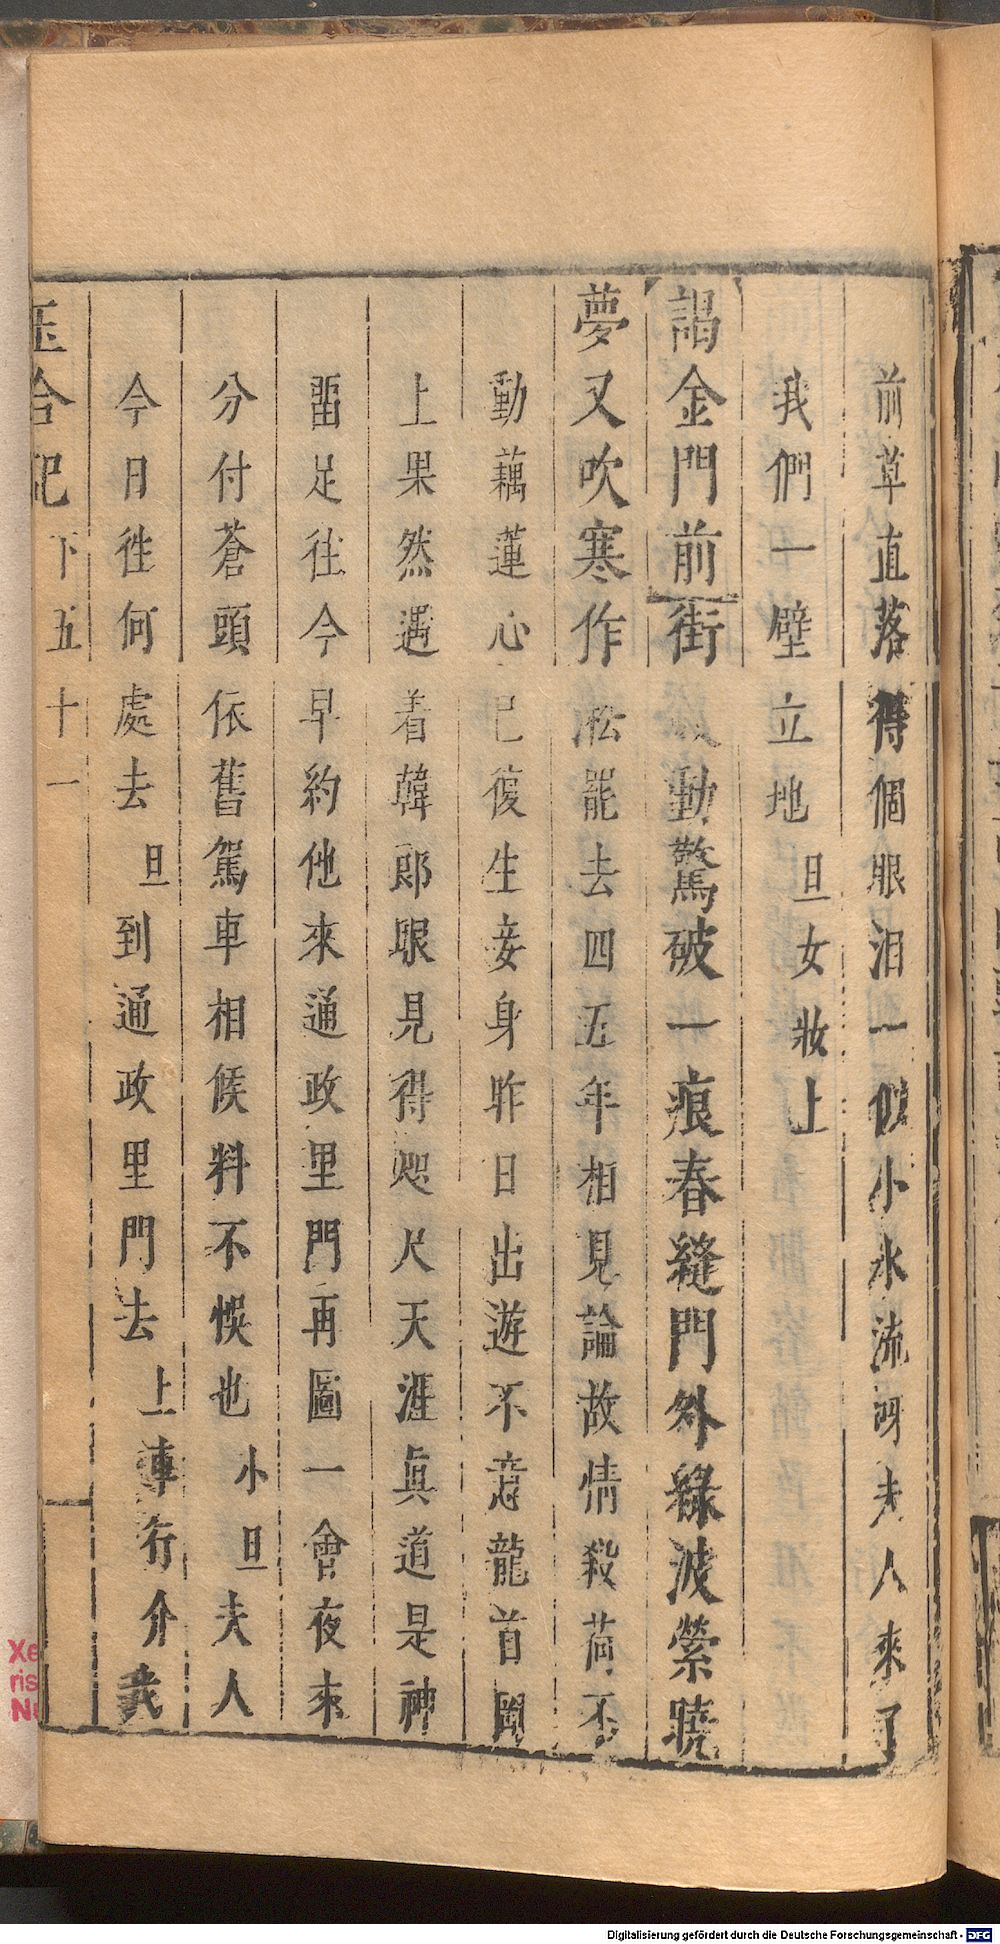 前草直落得個眼泪一似小水流河夫人來了
我們一壁立地旦女妝上
謁金門前街動驚破一痕春縫門外綠波縈曉
夢又吹寒作凇能去四五年相見論故情殺荷不
動藕蓮心已復生妾身昨日出遊不意龍首岡
上果然遇着韓郎眼見得咫尺天涯真道是神
畱足往今早約他來通政里門再圖一會夜來
分付蒼頭依舊駕車相候料不悞也小旦夫人
今日徃何處去旦到通政里門去上車行介我
玉合記下五十一
Xe
ris
Nu
Digitalisierung gefördert durch die Deutsche Forschungsgemeinschaft - DFG